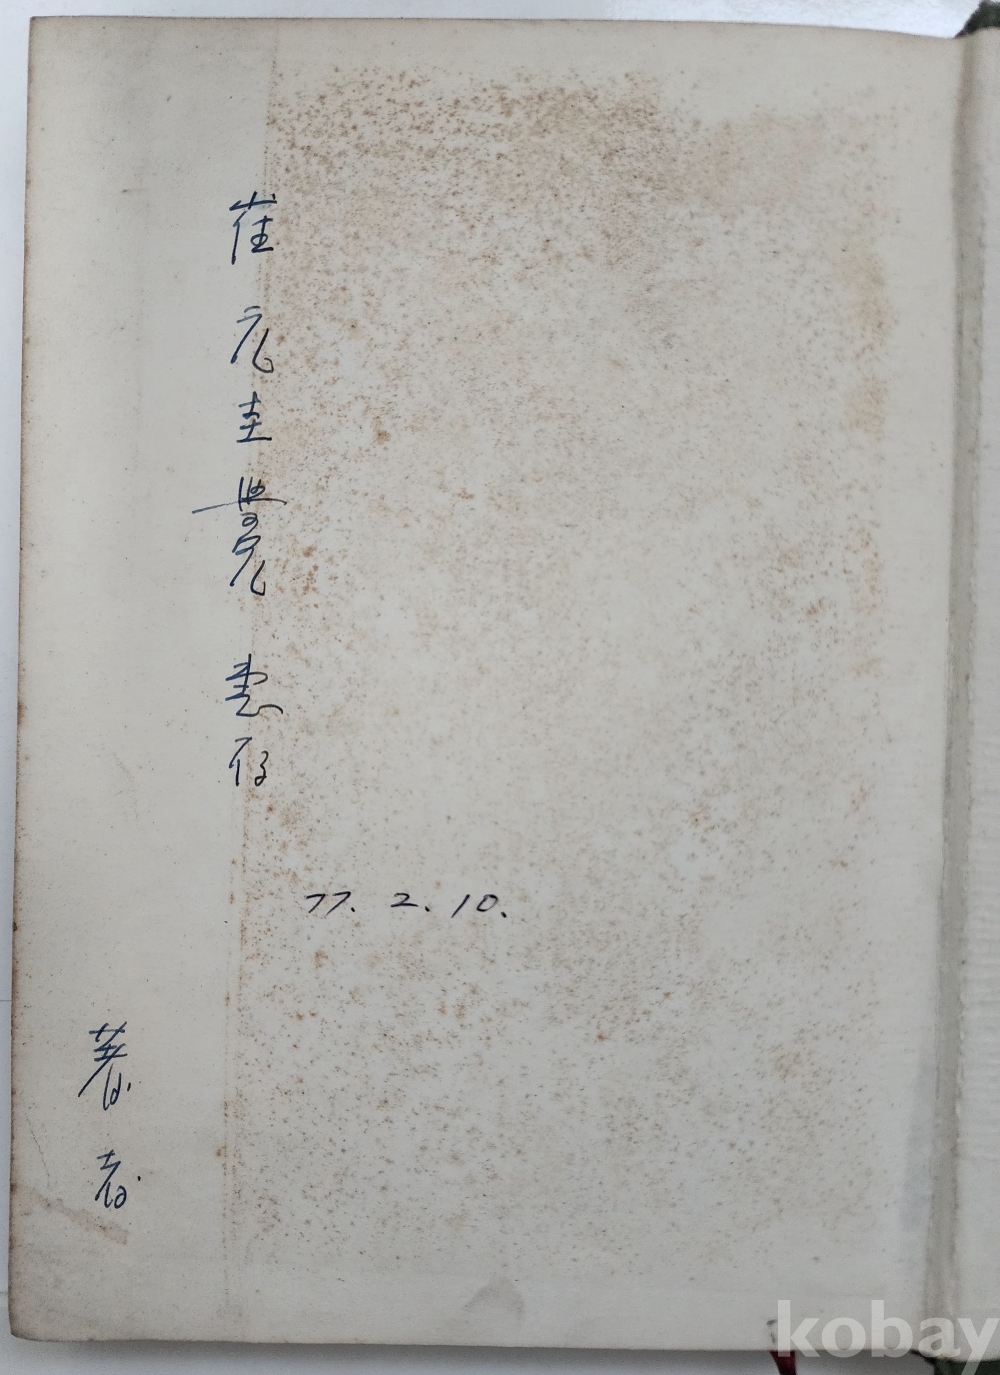 崔元圭覺惠存
77. 2. 10.
著者
kobay